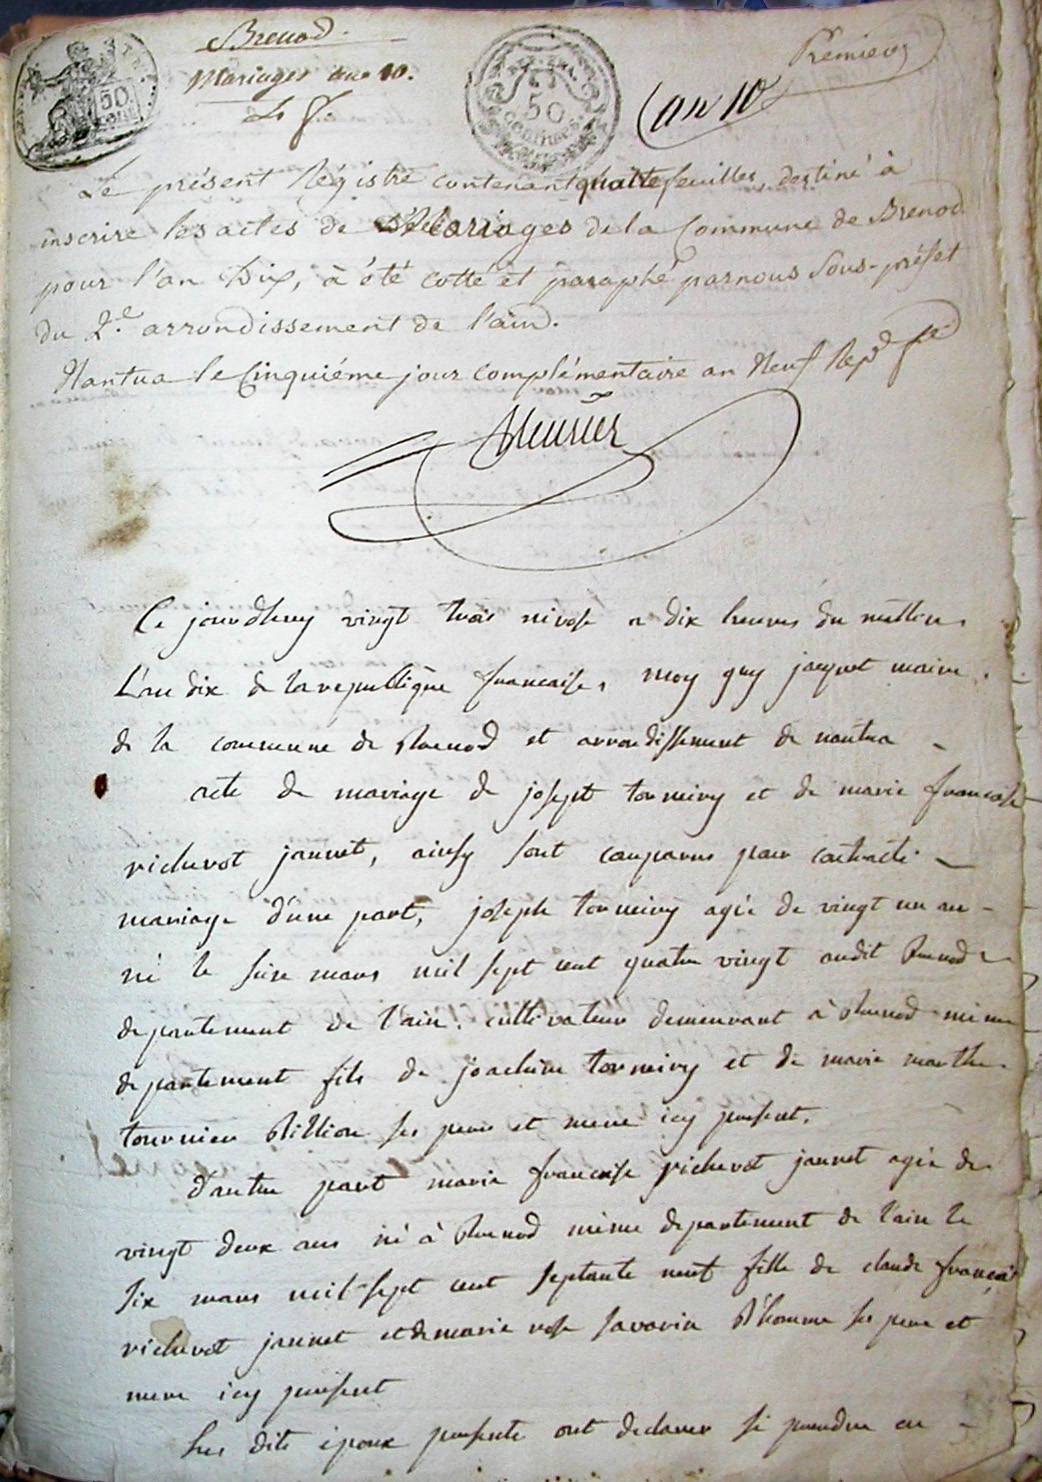 Brenod.
Mariages an 10.
50
50
centimes
Premier
an 10
Le présent Régistre contenant quatre feuilles, destiné à
inscrire les actes de Mariages de la Commune de Brenod
pour l'an Dix, à été cotté et paraphé par nous Sous-préfet
du 2.e arrondissement de l'ain.
Nantua le Cinquiéme jour complémentaire an Neuf Rep.
Ce jourdhuy vingt trois nivose a dix heures du mattin
L'an dix de la republique francaise, moy guy jacquet maire
de la commune de Brenod et arrondissement de nantua
acte de mariage de joseph torniery et de marie francoise
richerot jannet, ainsy sont comparus pour contracté
mariage d'une part, joseph torniery agée de vingt un an
né le seize mars mil sept cent quatre vingt audit Brenod
departement de l'ain. cultivateur demeurant à Brenod meme
departement fils de joachim torniery et de marie marthe
tournier Billion ses pere et mere icy present.
d'autre part marie francoise richerot jannet agée de
vingt deux ans né à Brenod même departement de l'ain le
six mars mil sept cent septante neuf fille de claude françois
richerot jannet et de marie rose savarin B'homme ses pere et
mere icy present
Les dits époux presents ont declarer se prendre en